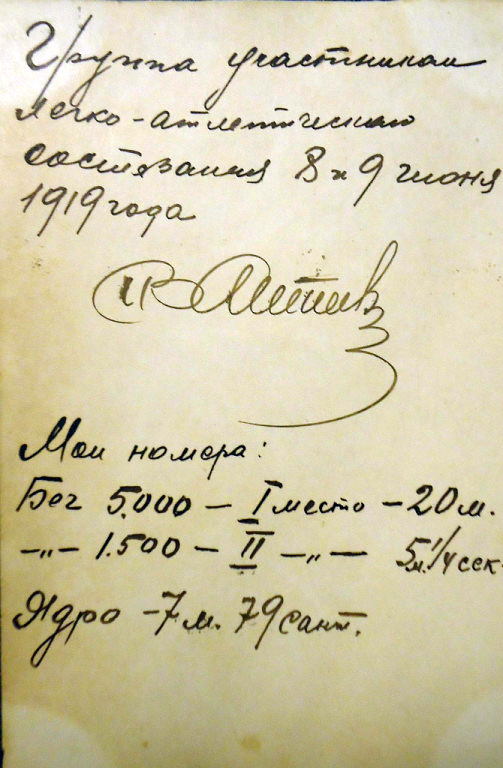 Группа участников
легко-атлетического
состязания 8 и 9 июня
1919 года
Мои номера:
Бег 5.000 – I место – 20 м.
–„– 1.500 – II –„– 5 м. 1/4 сек.
Ядро – 7 м. 79 сант.